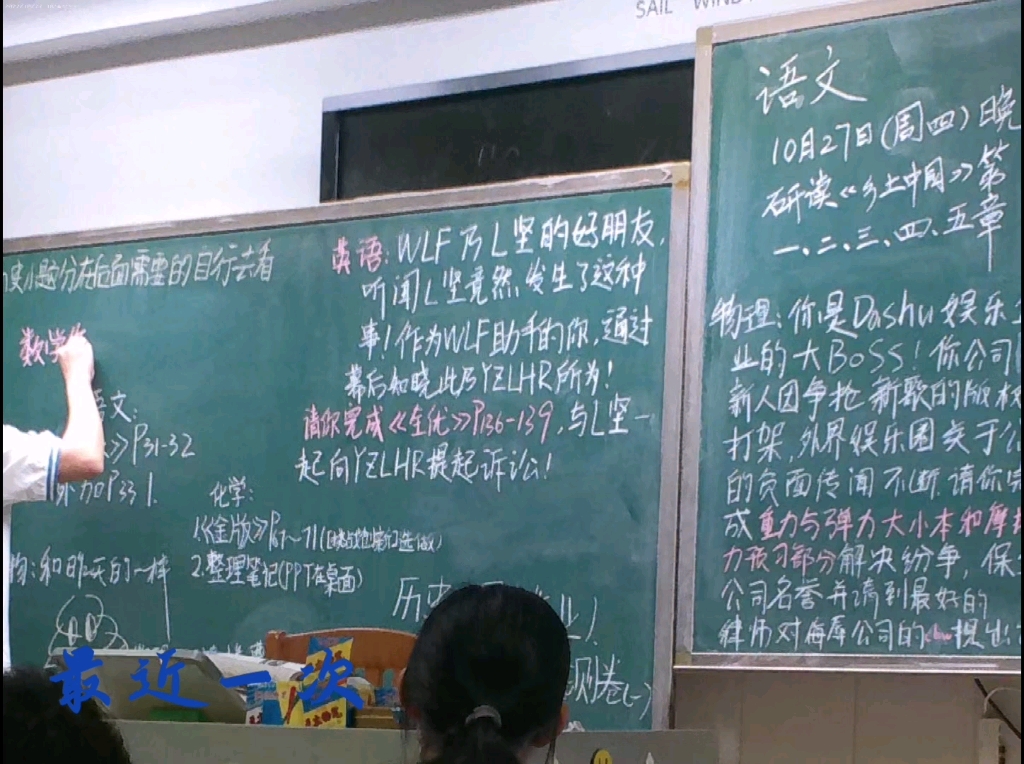 SAIL WIND
小题分在后面需要的自行去看
数学
语文:
》P31-32
P33 1.
化学:
1.《金版》P67~71(
2.整理笔记(PPT在桌面)
:和昨天的一样
英语: WLF乃L坚的好朋友,
听闻L坚竟然发生了这种
事!作为WLF助手的你,通过
幕后知晓此乃YZLHR所为!
请你完成《全优》P136-139,与L坚一
起向YZLHR提起诉讼!
历史
测卷(一)
语文
10月27日(周四)晚
研读《乡土中国》第
一、二、三、四、五章
物理:你是Dashu娱乐
业的大BOSS!你公司
新人因争抢新歌的版权
打架,外界娱乐圈关于公
的负面传闻不断请你完
成重力与弹力大小本和摩擦
力预习部分解决纷争,保
公司名誉并请到最好的
律师对每库公司的 提出
最近一次